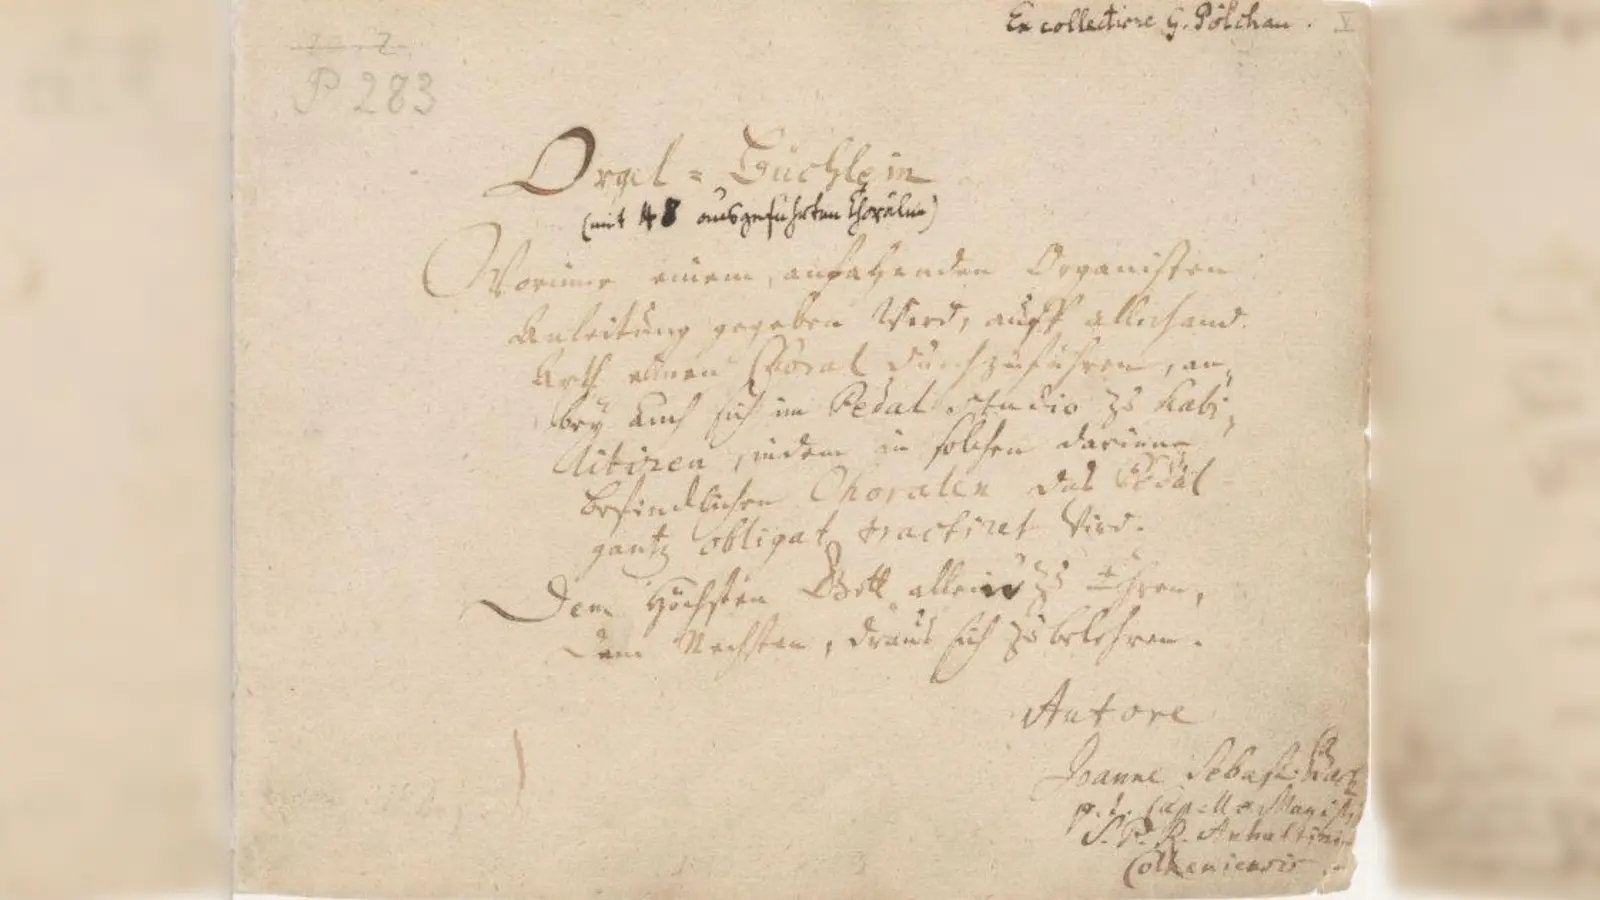 Ex collectione G. Pölchau.
V
P 283
Orgel=Büchlein
(mit 48 ausgeführten Chorälen)
Worinne einem anfahenden Organisten
Anleitung gegeben wird, auff allerhand
Arth einen Choral durchzuführen, an-
bey auch sich im Pedal studio zu habi-
litiren, indem in solchen darinne
befindlichen Choralen das Pedal
gantz obligat tractiret wird.
Dem Höchsten Gott allein zu Ehren,
Dem Nechsten, draus sich zu belehren.
Autore
Joanne Sebast: Bach
p. t. Capellæ Magistri
S. P. R. Anhaltini-
Cotheniensis.